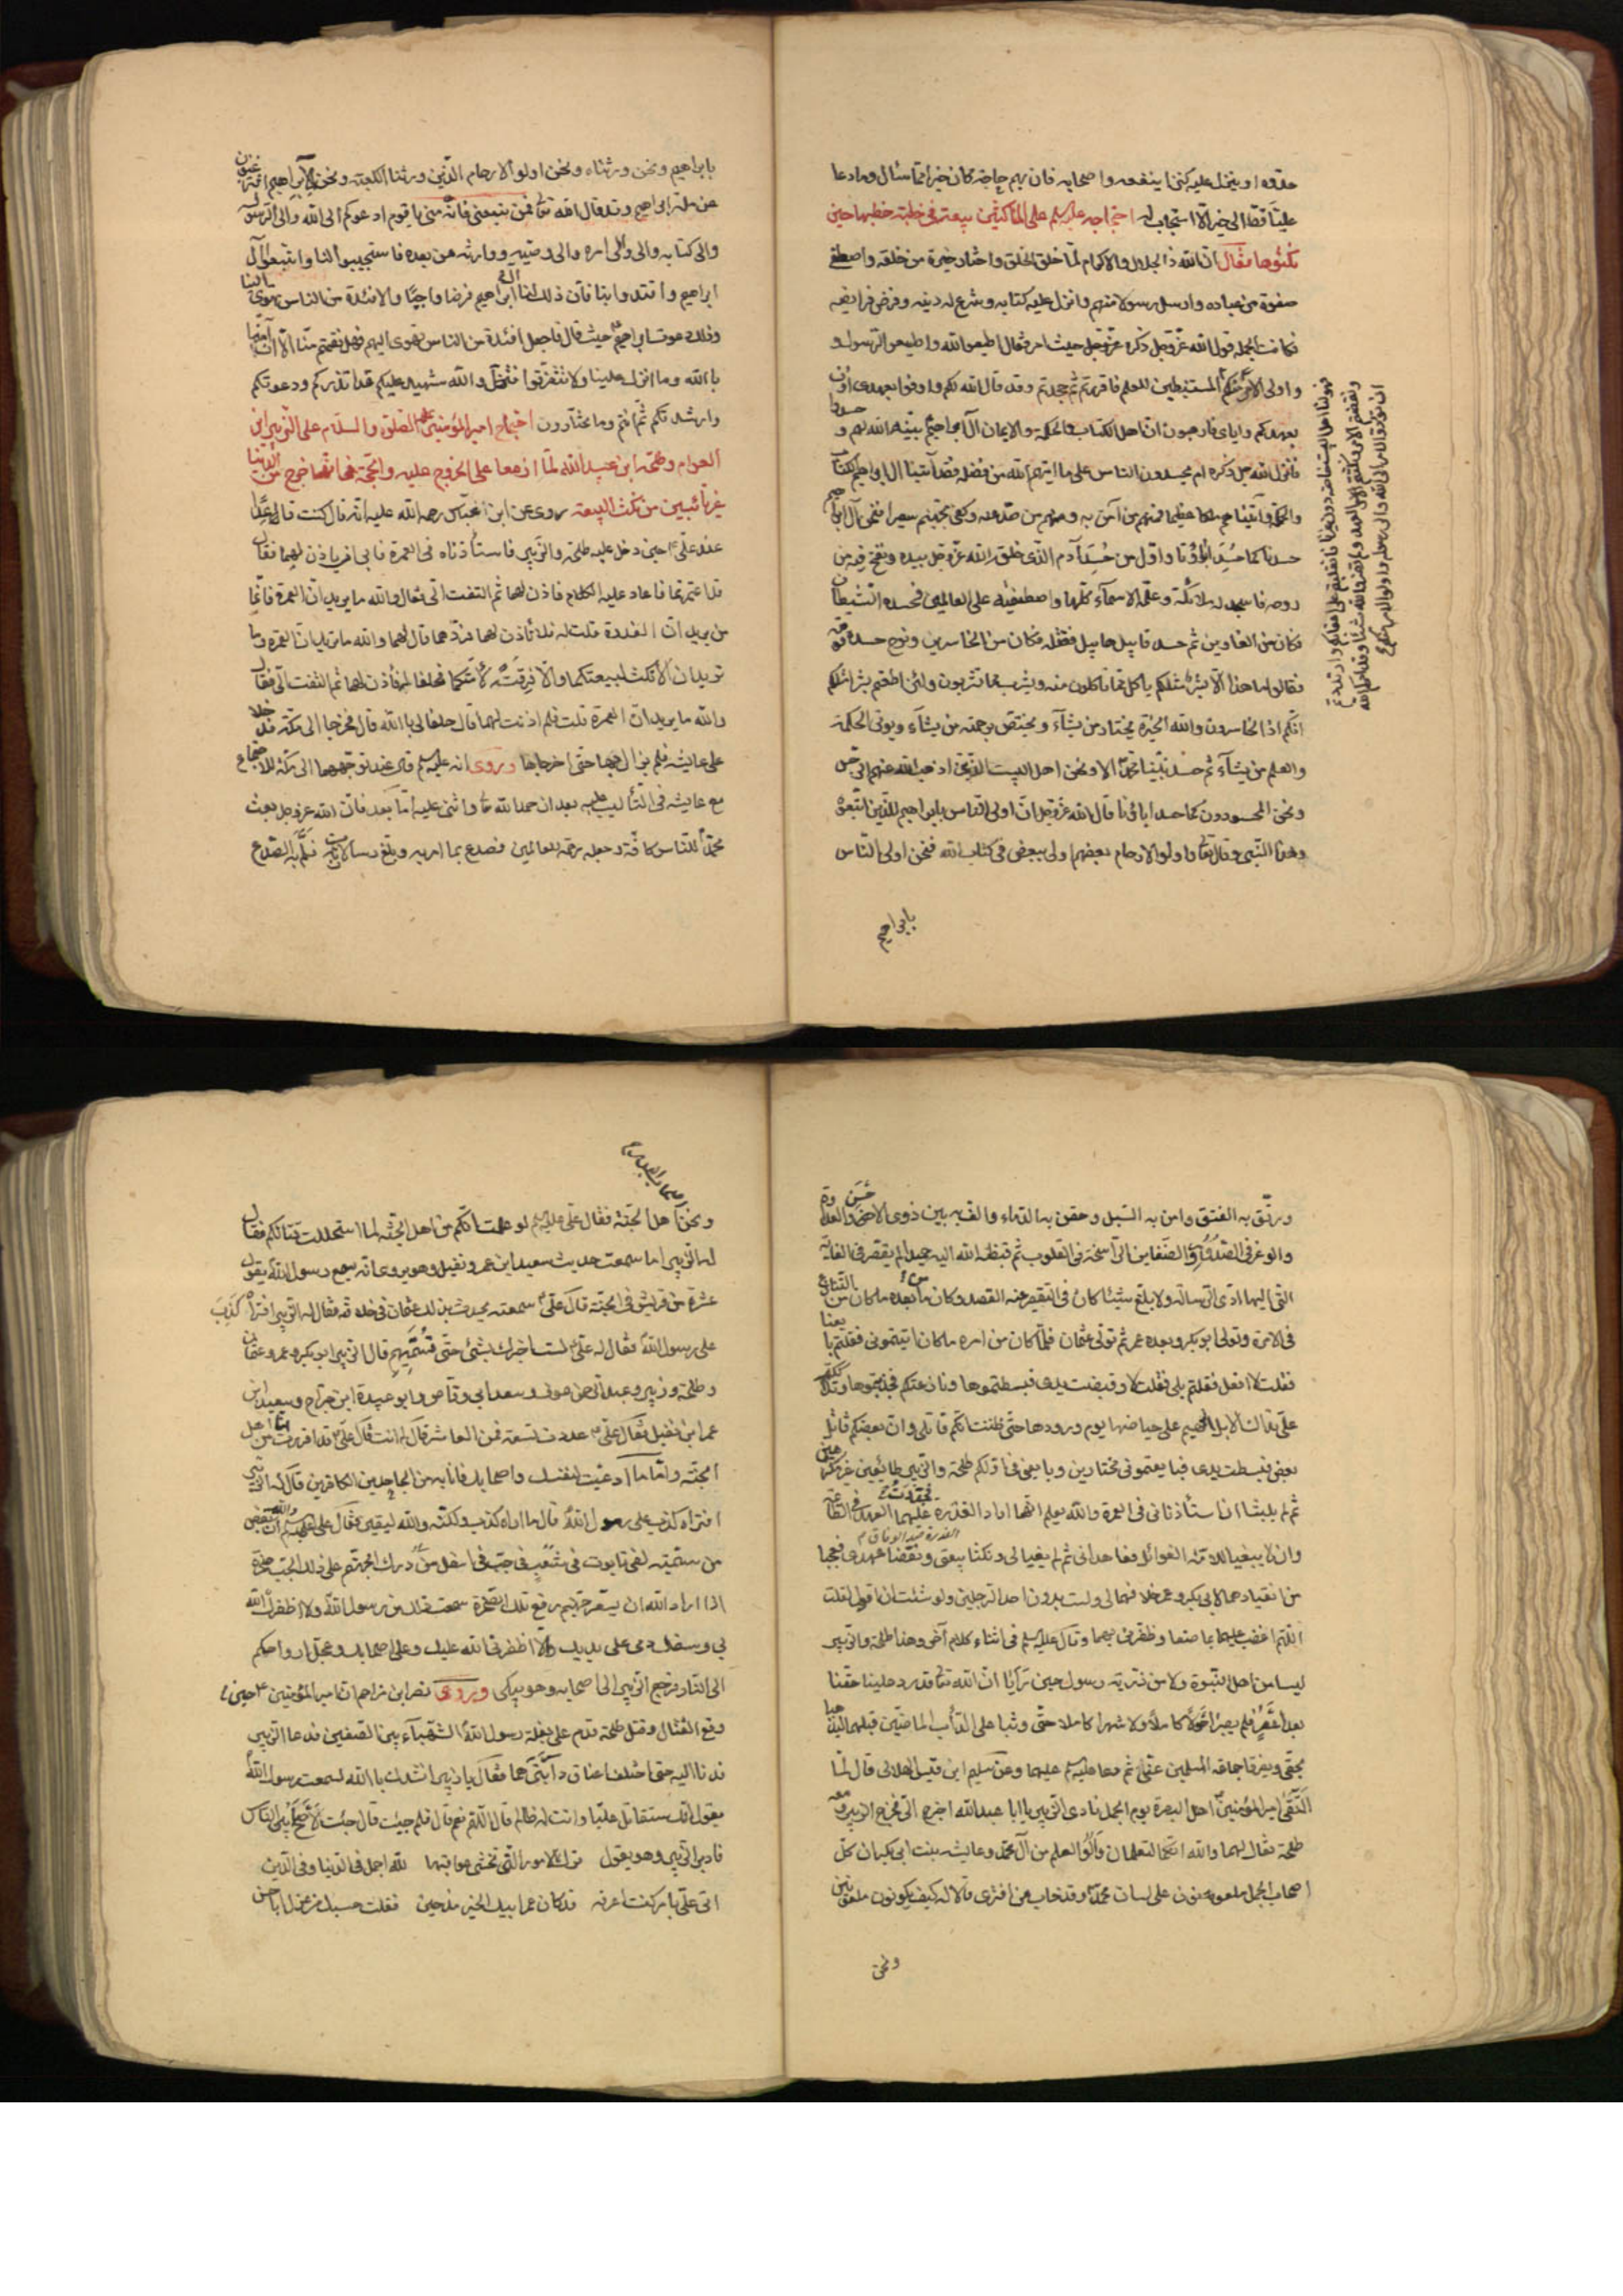 حقوه او ينزل عليه كنزا ينفعه واصحابه فان بهم حاجة كان خيرا مما سئال وما دعا
علينا قط الى خير الا استجاب له احتجاجه عليه السلم على الناكثين بيعته في خطبة خطبها حين
نكثوها فقال ان الله ذا الجلال والاكرام لما خلق الخلق واختار خيرة من خلقه واصطفى
صفوة من عباده وارسل رسولا منهم وانزل عليه كتابه وشرع له دينه وفرض فرايضه
فكانت الجملة قول الله عز وجل ذكره حيث امر فقال اطيعوا الله واطيعوا الرسول و
واولى الامر منكم المستنبطين للعلم فاقررتم ثم جحدتم وقد قال الله لكم واوفوا بعهدى اوف
بعهدكم واياى فارهبون ان اهل الكتاب والحكمة والايمان آل ابراهيم بينه الله لهم و حسدوا
فانزل الله جل ذكره ام يحسدون الناس على ما اتيهم الله من فضله فقد آتينا ال ابراهيم الكتاب
والحكمة وآتيناهم ملكا عظيما فمنهم من آمن به ومنهم من صد عنه وكفى بجهنم سعيرا فنحن آل ابراهيم
حسدنا كما حسد آباؤنا واول من حسد آدم الذى خلقه الله عز وجل بيده ونفخ فيه من
روحه فاسجد له ملائكته وعلمه الاسمآء كلها واصطفيه على العالمين فحسده الشيطان
فكان من الغاوين ثم حسد قابيل هابيل فقتله فكان من الخاسرين ونوح حسده قومه
فقالوا ما هذا الا بشر مثلكم ياكل مما تاكلون منه ويشرب مما تشربون ولئن اطعتم بشرا مثلكم
انكم اذا لخاسرون والله الخيرة يختار من يشآء ويختص برحمته من يشآء ويوتى الحكمة
والعلم من يشآء ثم حسد نبينا محمد الا ونحن اهل البيت الذين اذهب الله عنهم الرجس
ونحن المحسودون كما حسد اباؤنا قال الله عز وجل ان اولى الناس بابراهيم للذين اتبعوه
وهذا النبى وقال تعا واولو الارحام بعضهم اولى ببعض فى كتاب الله فنحن اولى الناس
بابراهيم
بابراهيم ونحن ورثناه ونحن اولو الارحام الذين ورثنا الكعبة ونحن آل ابراهيم افترغبون
عن ملة ابراهيم وقد قال الله تعا فمن تبعنى فانه منى يا قوم ادعوكم الى الله والى الرسول
والى كتابه والى ولى امره والى وصيه ووارثه من بعده فاستجيبوا لنا واتبعوا آل
ابراهيم واقتدوا بنا فان ذلك لنا آل ابراهيم فرضا واجبا والافئدة من الناس تهوى الينا
وذلك دعوة ابراهيم حيث قال فاجعل افئدة من الناس تهوى اليهم فهل نقمتم منا الا ان آمنا
بالله وما انزل علينا ولا تتفرقوا فتضلوا والله شهيد عليكم قد انذرتكم ودعوتكم
وارشدتكم ثم انتم وما تختارون احتجاج امير المؤمنين عليه الصلوة والسلام على الزبير ابن
العوام وطلحة ابن عبيد الله لما ازمعا على الخروج عليه والحجة فى انهما خرجا من الدنيا
غير تائبين من نكث البيعة روى عن ابن عباس رحمة الله عليه انه قال كنت قاعدا
عند على حين دخل عليه طلحة والزبير فاستأذناه فى العمرة فابى ان ياذن لهما فقال
قد اعتمرتما فاعاد عليه الكلام فاذن لهما ثم التفت الى فقال والله ما يريدان العمرة فانما
يريدان الغدرة قلت له فلا تاذن لهما فردهما قال لهما والله ما تريدان العمرة وما
تريدان الا نكثا لبيعتكما والا فرقة لامتكما فحلفا له فأذن لهما ثم التفت الى فقال
والله ما يريدان العمرة قلت فلم اذنت لهما قال حلفا لى بالله قال فخرجا الى مكة فدخلا
على عايشة فلم يزالا بها حتى اخرجاها وروى انه عليه السلم قال عند توجههما الى مكة للاجتماع
مع عايشة فى التأليب عليه بعد ان حمد الله تعا واثنى عليه اما بعد فان الله عز وجل بعث
محمدا للناس كافة وجعله رحمة للعالمين فصدع بما امر به وبلغ رسالات ربه فلم به الصدع
ورتق به الفتق وامن به السبل وحقن به الدماء والف به بين ذوى الاحن والعداوة
والوغر فى الصدور والضغاين الراسخة فى القلوب ثم قبضه الله اليه حميدا لم يقصر فى الغاية
التى اليها ادى الرسالة ولا بلغ شيئا كان فى التقصير عنه القصد وكان من بعده ما كان من التنازع
فى الامرة وتولى ابو بكر وبعده عمر ثم تولى عثمان فلما كان من امره ما كان اتيتمونى فقلتم بايعنا
فقلت لا افعل فقلتم بلى فقلت لا وقبضت يدى فبسطتموها ونازعتكم فجذبتموها وتداككتم
على تداك الابل الهيم على حياضها يوم ورودها حتى ظننت انكم قاتلى وان بعضكم قاتل
بعض فبسطت يدى فبايعتمونى مختارين وبايعنى فى اولكم طلحة والزبير طائعين غير مكرهين
ثم لم يلبثا ان استأذنانى فى العمرة والله يعلم انهما ارادا الغدرة فجددت عليهما العهد فى الطاعة
وان لا يبغيا للامة الغوائل فعاهدانى ثم لم يفيا لى ونكثا بيعتى ونقضا عهدى فعجبا
من انقيادهما لابى بكر وعمر وخلافهما لى ولست بدون احد الرجلين ولو شئت ان اقول لقلت
اللهم اغضب عليهما بما صنعا وظفرنى بهما وقال عليه السلم فى اثناء كلام آخر وهذا طلحة والزبير
ليسا من اهل النبوة ولا من ذرية رسول حين رأيا ان الله تعا قد رد علينا حقنا
بعد اعصر فلم يصبرا حولا كاملا ولا شهرا كاملا حتى وثبا على دأب الماضين قبلهما ليذهبا
بحقى ويفرقا جماعة المسلمين عنى ثم دعا عليه السلم عليهما وعن سليم ابن قيس الهلالى قال لما
التقى امير المؤمنين اهل البصرة يوم الجمل نادى الزبير يا ابا عبد الله اخرج الى فخرج الزبير ومعه
طلحة فقال لهما والله انكما لتعلمان واولوا العلم من آل محمد وعايشة بنت ابى بكر ان كل
اصحاب الجمل ملعونون على لسان محمد وقد خاب من افترى قالا له كيف يكونون ملعونين
ونحن
ونحن اهل الجنة فقال على عليه السلم لو علمت انكم من اهل الجنة لما استحللت قتالكم فقال
له الزبير اما سمعت حديث سعيد ابن عمرو نفيل وهو يروى انه سمع رسول الله يقول
عشرة من قريش فى الجنة قال على سمعته يحدث بذلك عثمان فى خلافته فقال له الزبير افتراه كذب
على رسول الله فقال له على لست اخبرك بشئ حتى تسميهم قال الزبير ابو بكر وعمر وعثمان
وطلحة وزبير وعبد الرحمن عوف وسعد ابى وقاص وابو عبيدة ابن جراح وسعيد ابن
عمر ابن نفيل فقال على عددت تسعة فمن العاشر قال له انت قال على قد اقررت انى من اهل
الجنة واما ما ادعيت لنفسك واصحابك فانا به من الجاحدين الكافرين قال له الزبير
افتراه كذب على رسول الله قال ما اراه كذب ولكنه والله ليقين فقال على عليه السلم والله ان بعض
من سميته لفى تابوت فى شعب فى جب فى اسفل درك الجهنم على ذلك الجب صخرة
اذا اراد الله ان يسعر جهنم رفع تلك الصخرة سمعت ذلك من رسول الله والا اظفرك الله
بى وسفك دمى على يديك والا اظفرنى الله عليك وعلى اصحابك وعجل ارواحكم
الى النار فرجع الزبير الى اصحابه وهو يبكى وروى نصر ابن مزاحم ان امير المؤمنين حين
وقع القتال وقتل طلحة تقدم على بغلة رسول الله الشهبآء بين الصفين فدعا الزبير
فدنا اليه حتى اختلف اعناق دابتيهما فقال يا زبير انشدك بالله اسمعت رسول الله
يقول انك ستقاتل عليا وانت له ظالم قال اللهم نعم قال فلم جيئت قال جئت لاصلح بين الناس
فادبر الزبير وهو يقول ترك الامور التى تخشى عواقبها لله اجمل فى الدنيا وفى الدين
اتى على بامر كنت اعرفه قد كان عمر ابيك الخير مذ حين فقلت حسبك من عذل ابا حسن